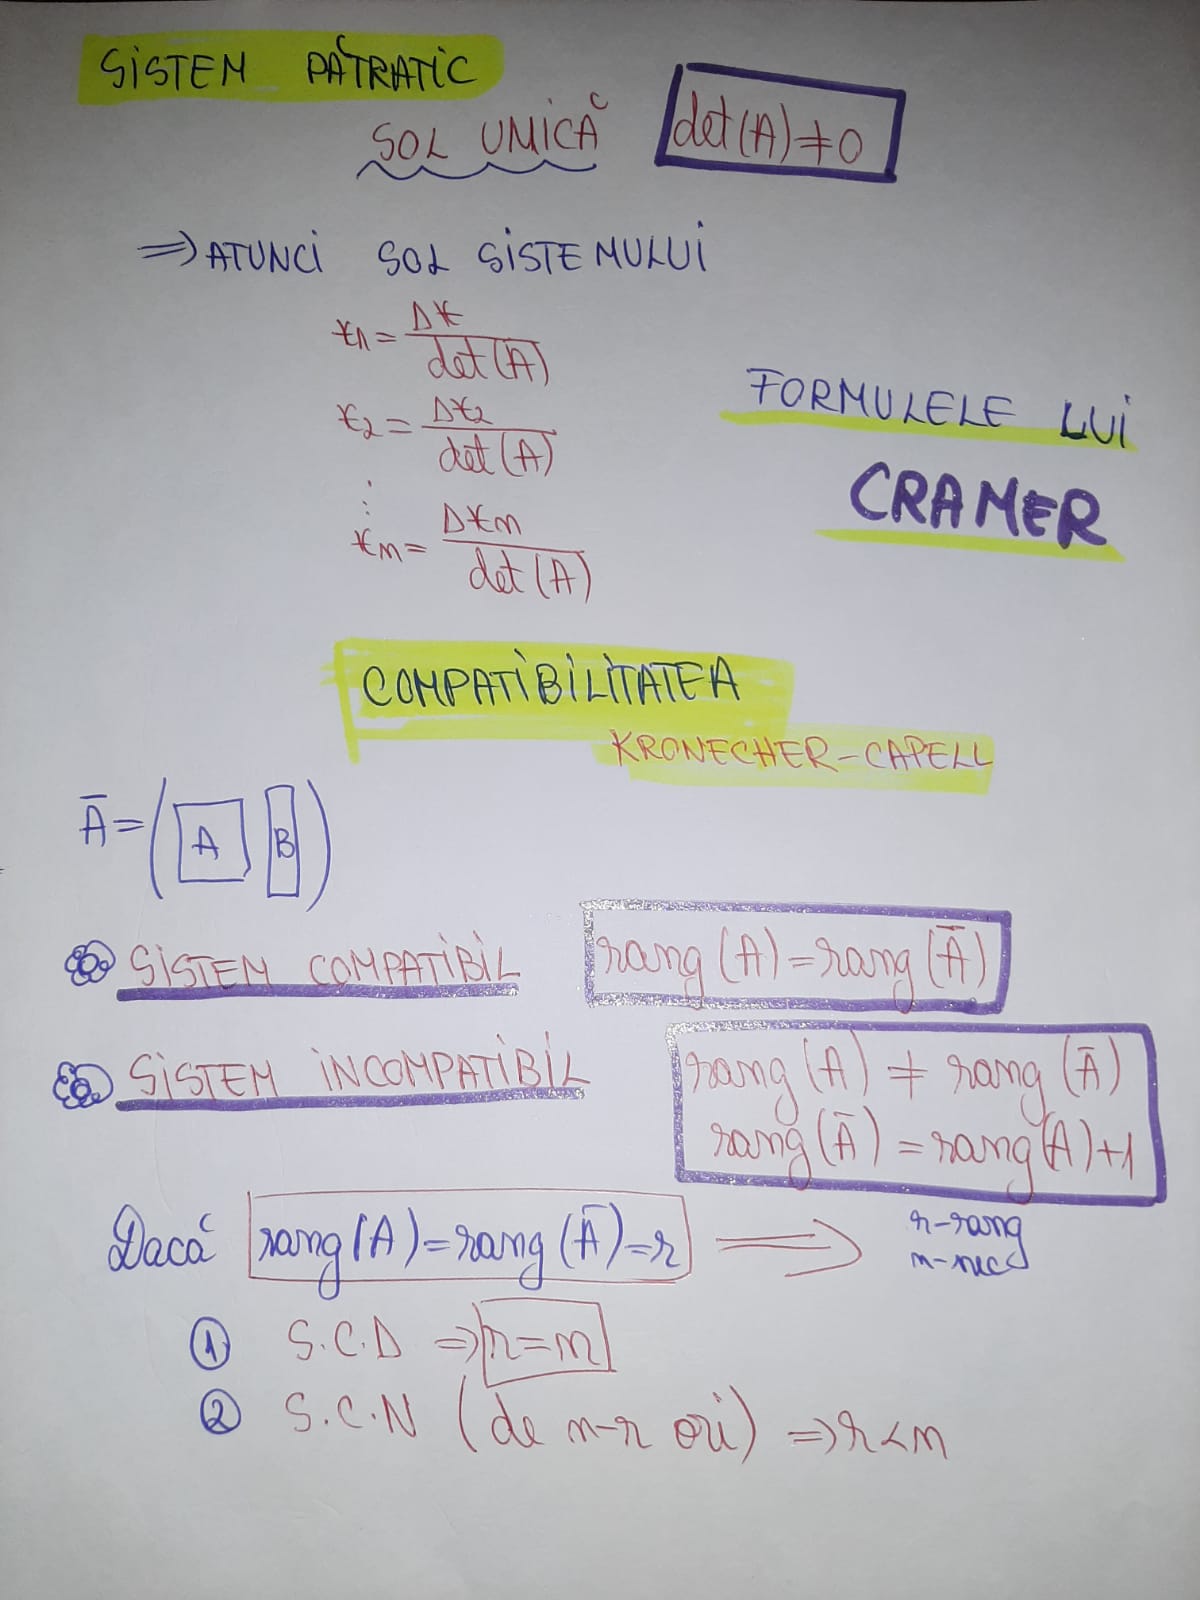 SISTEM PĂTRATIC
SOL UNICĂ det(A)≠0
⇒ATUNCI SOL SISTEMULUI
x1= Δx/det(A)
x2= Δx2/det(A)
⋮
xn= Δxn/det(A)
FORMULELE LUI
CRAMER
COMPATIBILITATEA
KRONECHER-CAPELL
Ā=(A B)
SISTEM COMPATIBIL rang(A)=rang(Ā)
SISTEM INCOMPATIBIL rang(A)≠rang(Ā)
rang(Ā)=rang(A)+1
Dacă rang(A)=rang(Ā)=r ⇒ r-rang
n-nec
1 S.C.D ⇒ r=n
2 S.C.N (de n-r ori) ⇒ r<n